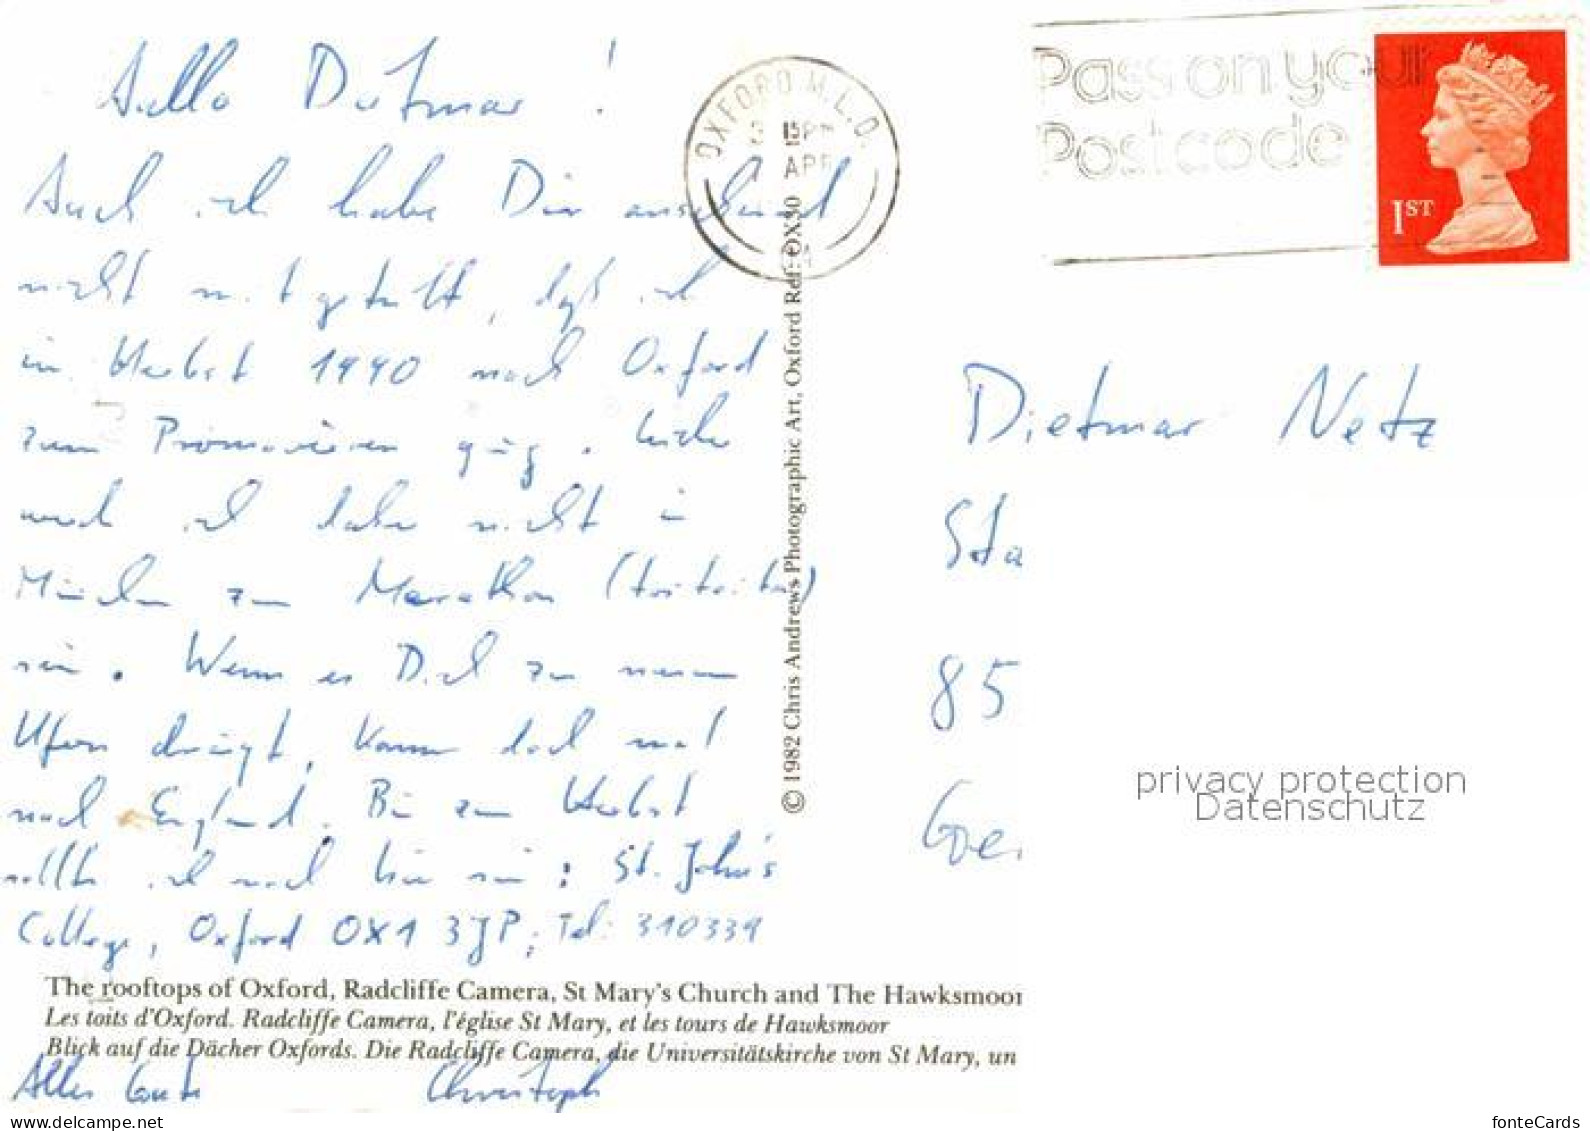 Hallo Dietmar !
Auch ich habe Dir anscheinend
nicht mitgeteilt, daß ich
im Herbst 1990 nach Oxford
zum Promovieren ging. Leider
werde ich daher nicht in
München zum Marathon
sein. Wenn es Dich zu neuen
Ufern drängt, komm doch mal
nach England. Bis zum Herbst
sollte ich noch hier sein: St. John's
College, Oxford OX1 3JP; Tel: 310339
Alles Gute Christoph
The rooftops of Oxford, Radcliffe Camera, St Mary's Church and The Hawksmoor
Les toits d'Oxford. Radcliffe Camera, l'église St Mary, et les tours de Hawksmoor
Blick auf die Dächer Oxfords. Die Radcliffe Camera, die Universitätskirche von St Mary, un
© 1982 Chris Andrews Photographic Art, Oxford Ref: OX30
OXFORD M.L.O.
APR
Pass on your
Postcode
1ST
Dietmar Netz
Sta
85
Ge
privacy protection
Datenschutz
www.delcampe.net
fonteCards